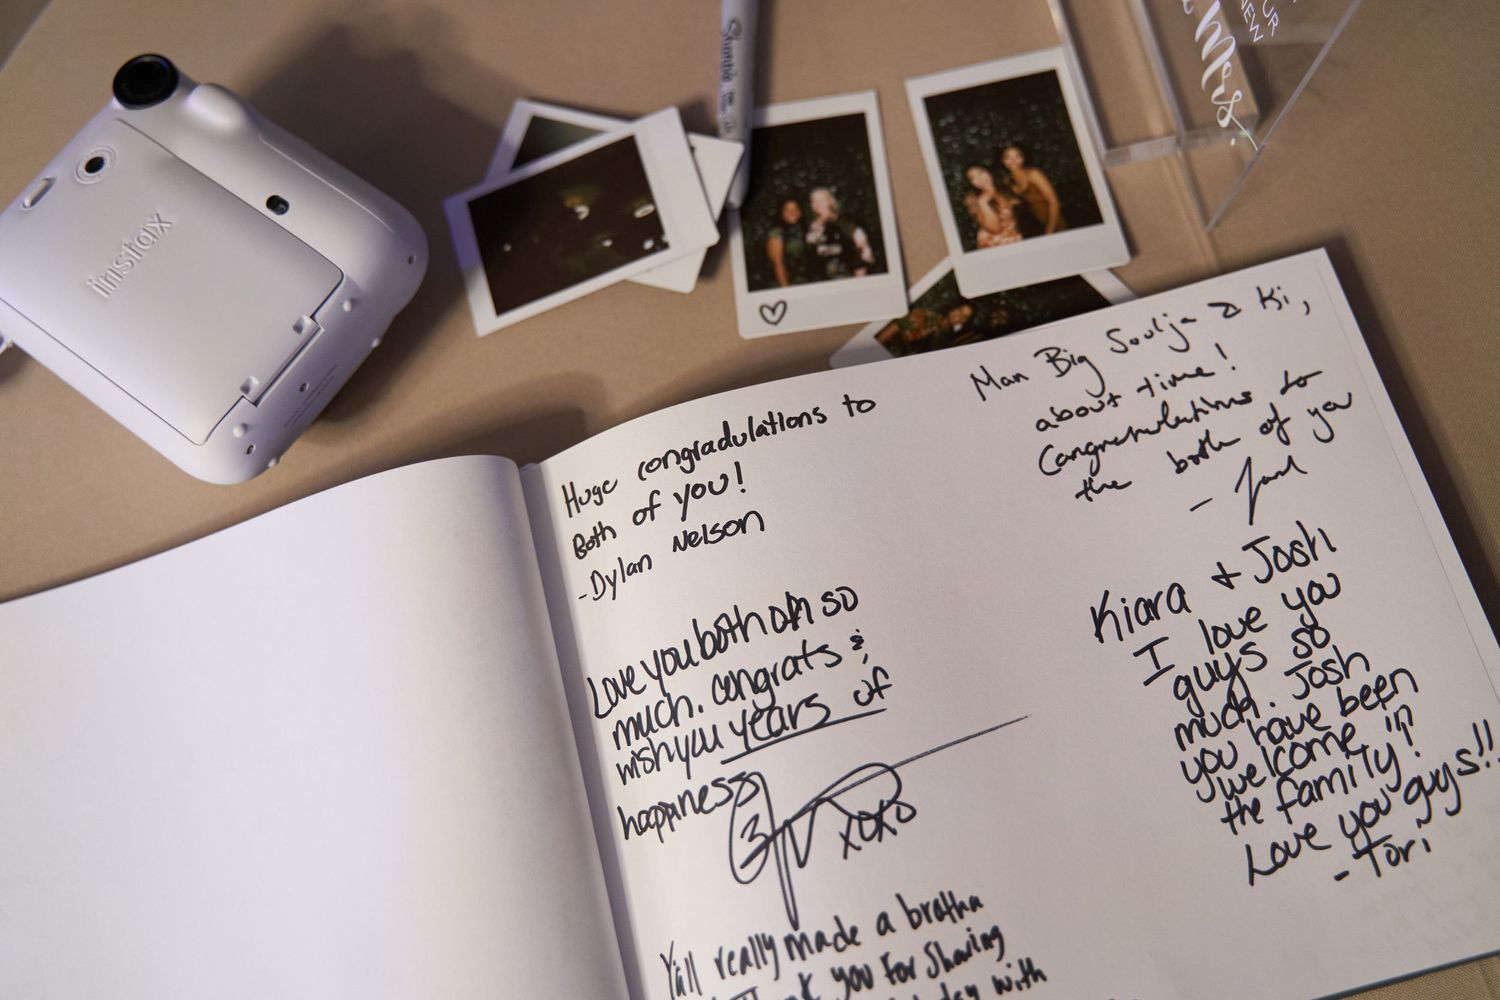 instax
Sharpie
Mrs.
OUR
NEW
Huge congradulations to
Both of you!
-Dylan Nelson
Love you both oh so
much. congrats &
wish you years of
happiness
xoxo
Y'all really made a bratha
you for sharing
day with
Man Big Soulja & Ki,
about time!
Congratulations to
the both of you
Kiara + Josh
I love you
guys so
much. Josh
you have been
welcome in
the family!
Love you guys!!
- Tori